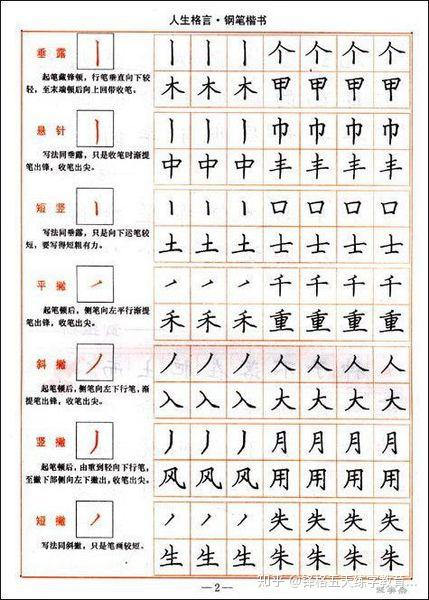 人生格言·钢笔楷书
垂露 丨 丨 丨 丨 个 个 个 个
起笔藏锋顿，行笔垂直向下较
轻，至末端顿后向上回带收笔。
木 木 木 甲 甲 甲 甲
悬针 丨 丨 丨 丨 巾 巾 巾 巾
写法同垂露，只是收笔时渐提
笔出锋，收笔出尖。
中 中 中 丰 丰 丰 丰
短竖 丨 丨 丨 丨 口 口 口 口
写法同垂露，只是向下运笔较
短，要写得短粗有力。
土 土 土 士 士 士 士
平撇 ㇒ ㇒ ㇒ ㇒ 千 千 千 千
起笔顿后，侧笔向左平行渐提
笔出锋，收笔出尖。
禾 禾 禾 重 重 重 重
斜撇 丿 丿 丿 丿 人 人 人 人
起笔顿后，侧笔向左下行笔，渐
提笔出锋，收笔出尖。
入 入 入 大 大 大 大
竖撇 丿 丿 丿 丿 月 月 月 月
起笔顿后，由重到轻向下行笔，
至撇下部侧向左下撇出，收笔出尖。
风 风 风 用 用 用 用
短撇 ㇒ ㇒ ㇒ ㇒ 失 失 失 失
写法同斜撇，只是笔画较短。
生 生 生 朱 朱 朱 朱
—2—
知乎 @铎格五天练字教育...